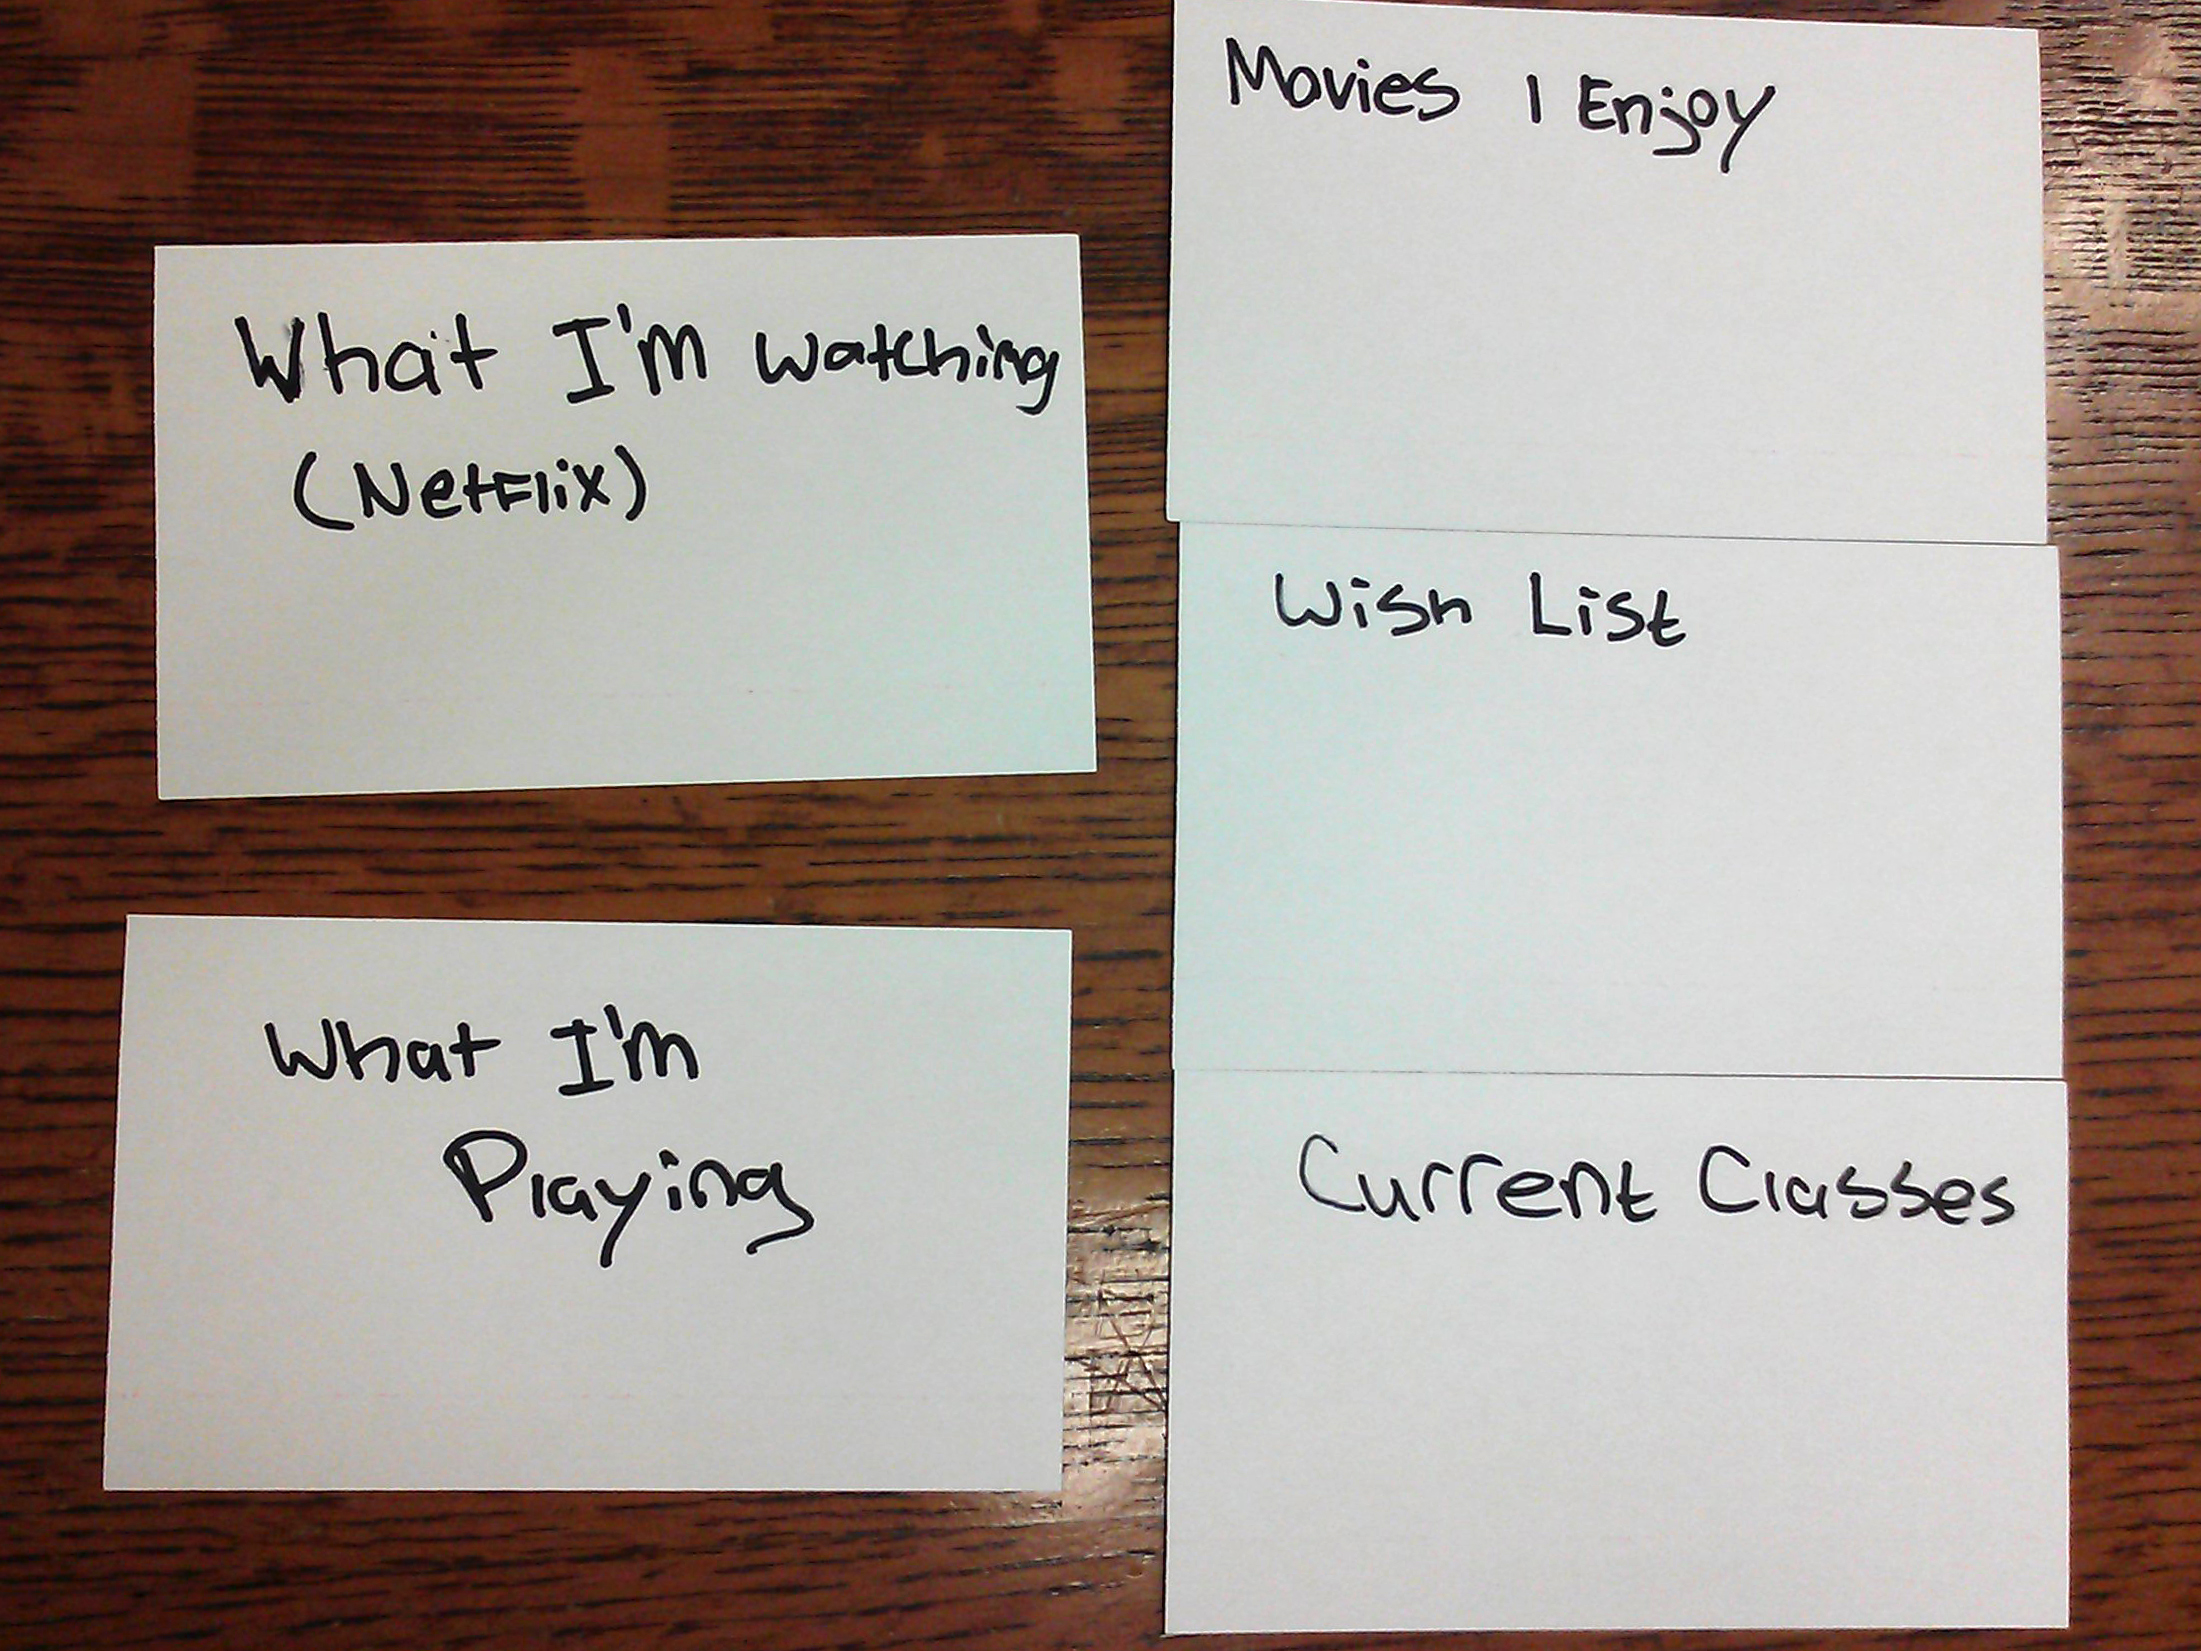 What I'm watching
(Netflix)
What I'm
Playing
Movies I Enjoy
Wish List
Current Classes